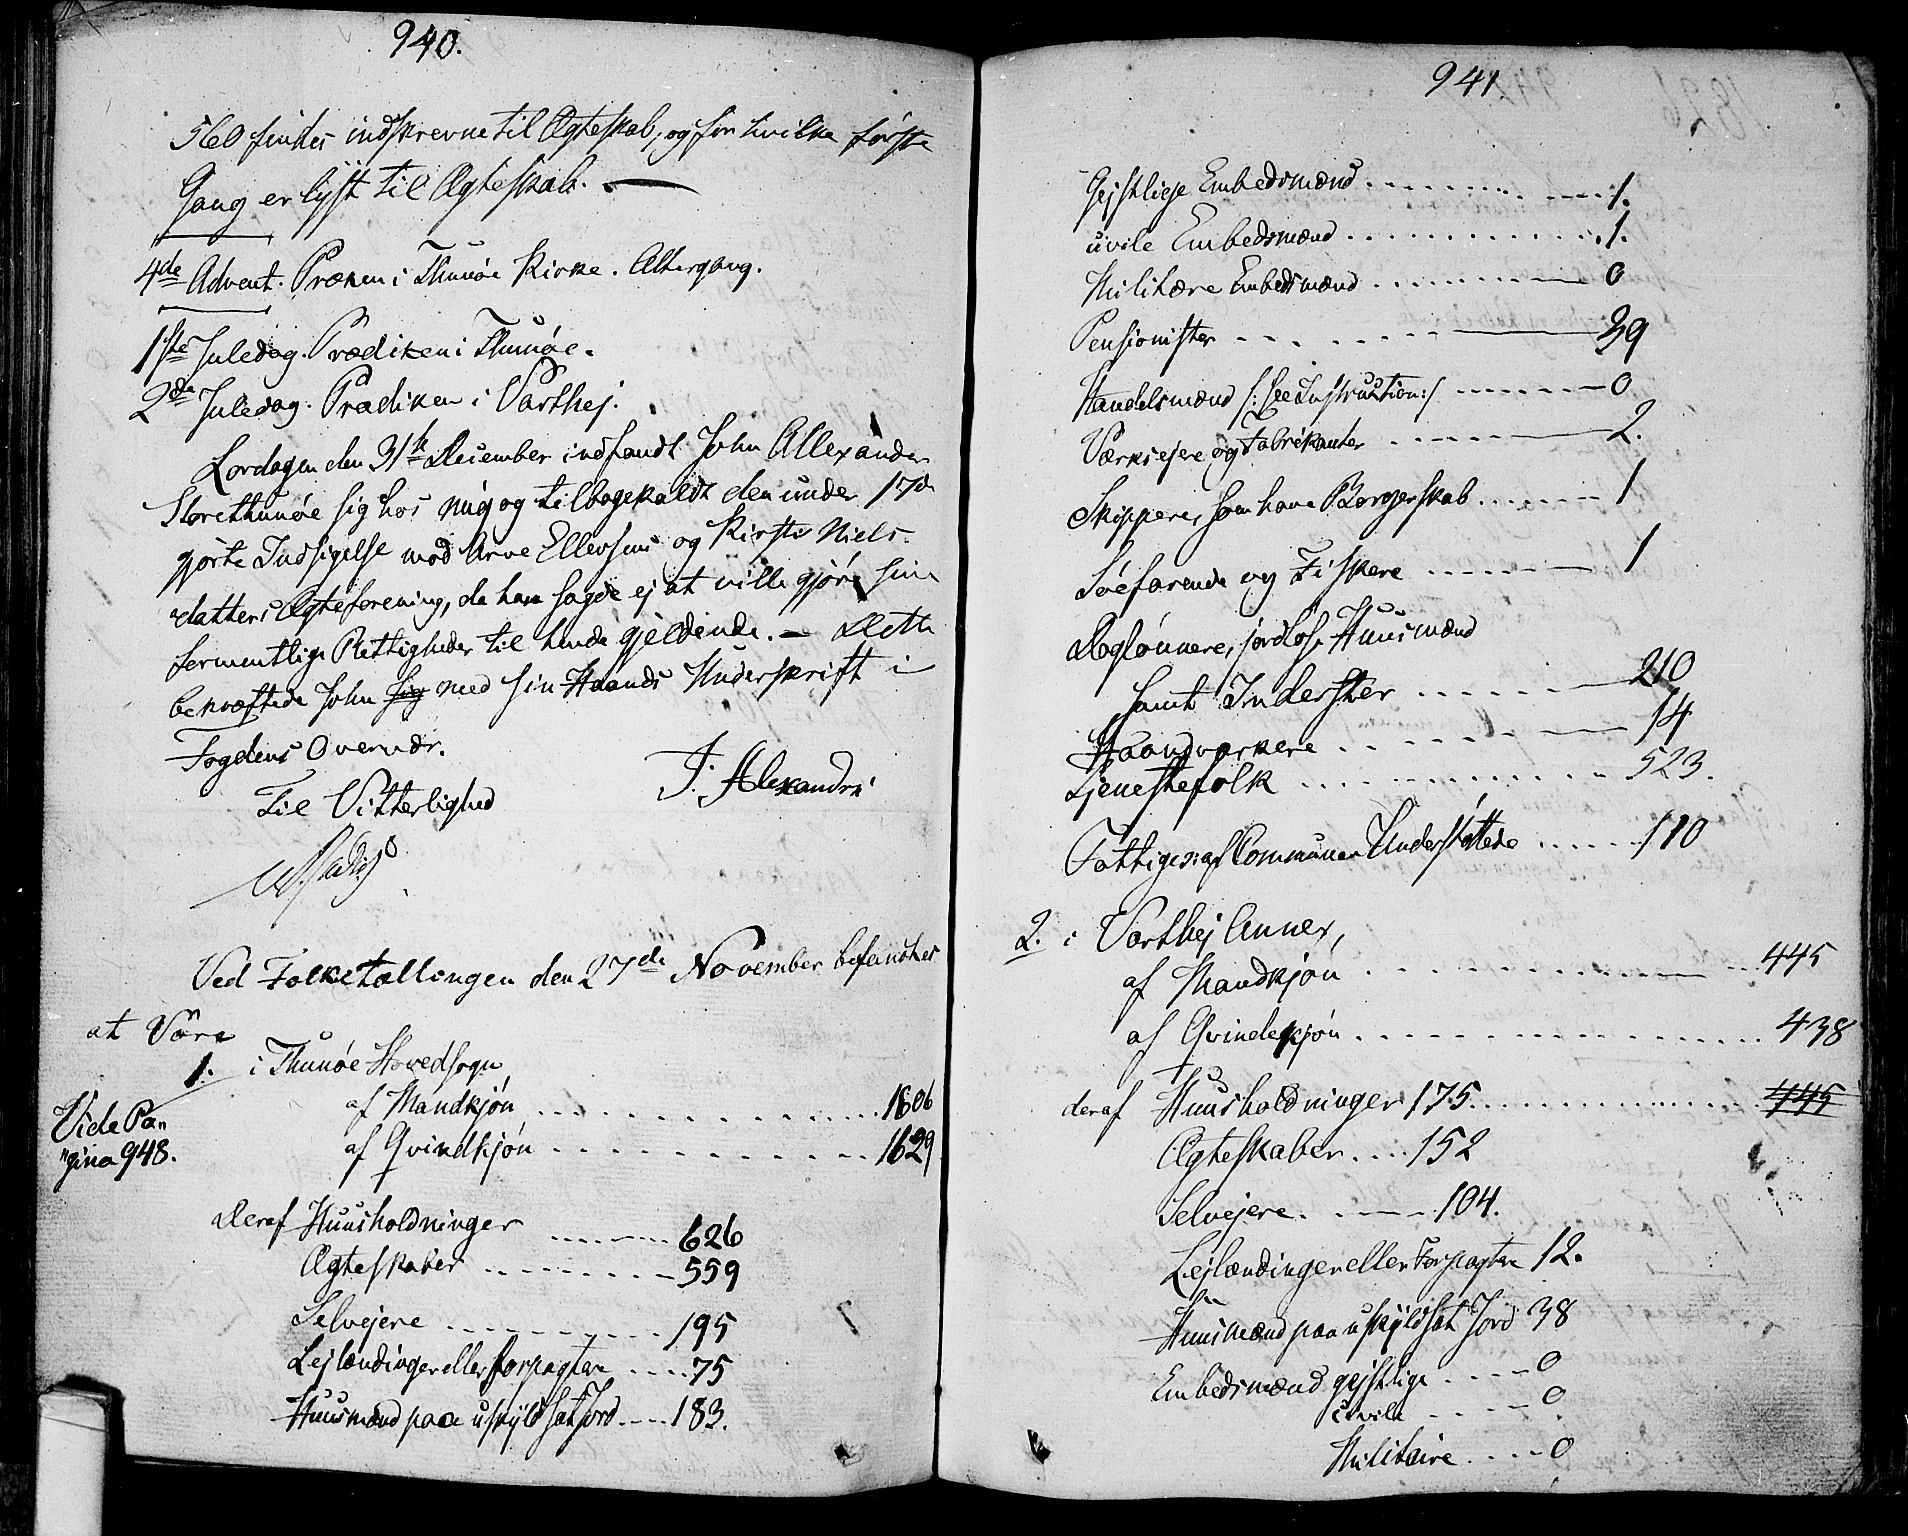 940.
560 findes indskrevne til Ægteskab, og for hvilke første
Gang er lyst til Ægteskab.
4de Advent. Præken i Thunöe Kirke. Altergang.
1ste Juledag. Prædiken i Thunöe.
2den Juledag. Prædiken i Varthej.
Lørdagen den 31te December indfandt John Allexander
Storethunöe sig hos mig og tilbagekaldt den under 17de
gjørte Indsigelse mod Arve Ellevsens og Kirste Niels-
datters Ægteforening, da han sagde ej at ville gjøre sine
formentlige Rettigheder til hende gjeldende. – Dette
bekræftede John sig med sin Haands Underskrift i
Fogdens Overvær.
Til Vitterlighed
J. Alexandre
Ved Folketællingen den 27de November befandtes
at Være
1. i Thunöe Hovedsogn
af Mandkjön 1606
Vide Pa-
af Qvindkjön 1629
"gina 948.
Deraf Huusholdninger 626
Ægteskaber 559
Selvejere 195
Lejlændinger eller forpagtere 75
Huusmænd paa uskyldsat Jord 183.
941
Gejstlige Embedsmænd 1.
civile Embedsmænd 1.
Militære Embedsmænd 0
Pensionister 39
Handelsmænd /: see Instruction :/ 0
Værksejere og Fabrikanter 2.
Skippere, som have Borgerskab 1
Söefarende og Fiskere 1
Daglönnere, jordløse Huusmænd
samt Inderster 210
Haandværkere 14
Tjenestefolk 523.
Fattige: af Communen Understöttede 110
2. i Varthej Annex,
af Mandkjön 445
af Qvindekjön 438
deraf Huusholdninger 175 445
Ægteskaber 152
Selvejere 104.
Lejlændinger eller Forpagtere 12.
Huusmænd paa uskyldsat Jord 38
Embedsmænd gejstlige 0
civile 0
Militaire 0